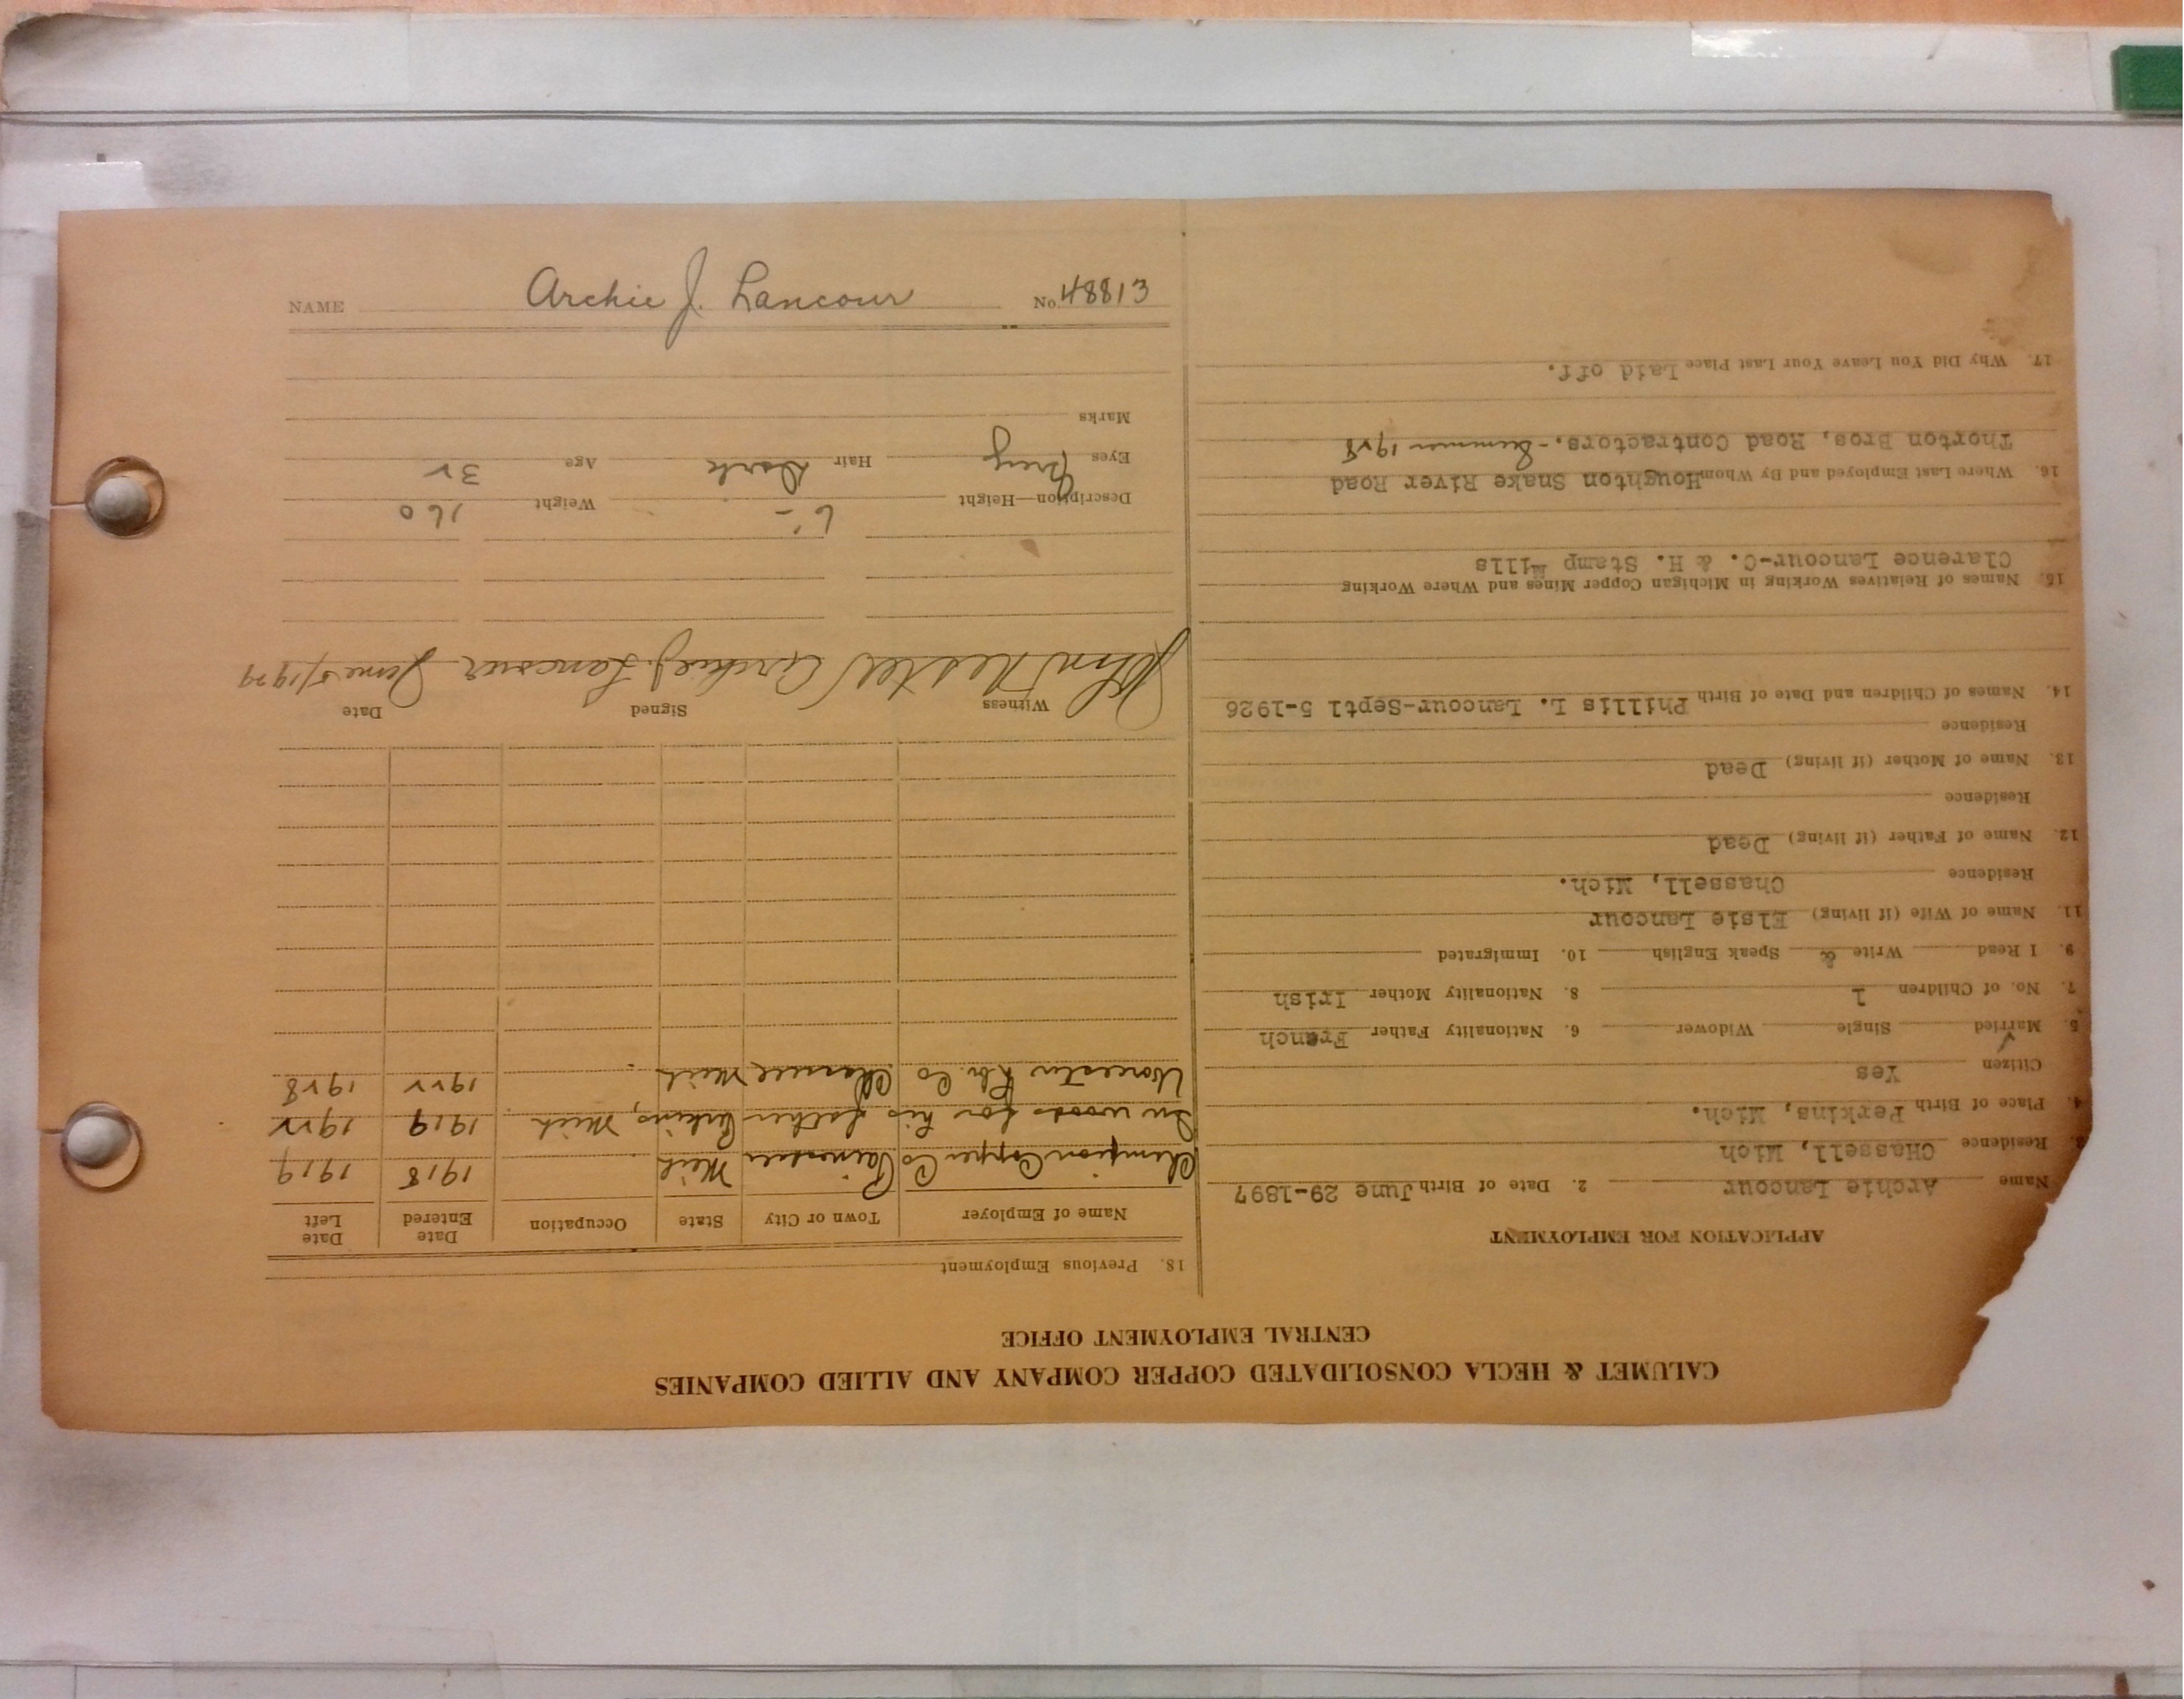 NAME Archie J. Lancour No 48813
CALUMET & HECLA CONSOLIDATED COPPER COMPANY AND ALLIED COMPANIES
CENTRAL EMPLOYMENT OFFICE
APPLICATION FOR EMPLOYMENT
Name Archie Lancour 2. Date of Birth June 29-1897
3. Residence CHassell, Mich
4. Place of Birth Perkins, Mich.
Citizen Yes
5. Married ✓ Single Widower 6. Nationality Father French
7. No. of Children 1 8. Nationality Mother Irish
9. I Read Write & Speak English 10. Immigrated
11. Name of Wife (if living) Elsie Lancour
Residence Chassell, Mich.
12. Name of Father (if living) Dead
Residence
13. Name of Mother (if living) Dead
Residence
14. Names of Children and Date of Birth Phillis L. Lancour-Sept1 5-1926
15. Names of Relatives Working in Michigan Copper Mines and Where Working
Clarence Lancour-C. & H. Stamp Mills
16. Where Last Employed and By Whom Houghton Snake River Road
Thorton Bros, Road Contractors.- Summer 1928
17. Why Did You Leave Your Last Place Laid off.
18. Previous Employment
Name of Employer Town or City State Occupation Date Entered Date Left
Champion Copper Co Painesdale Mich 1918 1919
In woods for his father Perkins, Mich 1919 1922
Worcester Lbr. Co Chassell Mich 1922 1928
Witness Signed Date
John Nestel Archie J. Lancour June 5/1929
Description—Height 6'- Weight 160
Eyes Grey Hair Dark Age 32
Marks